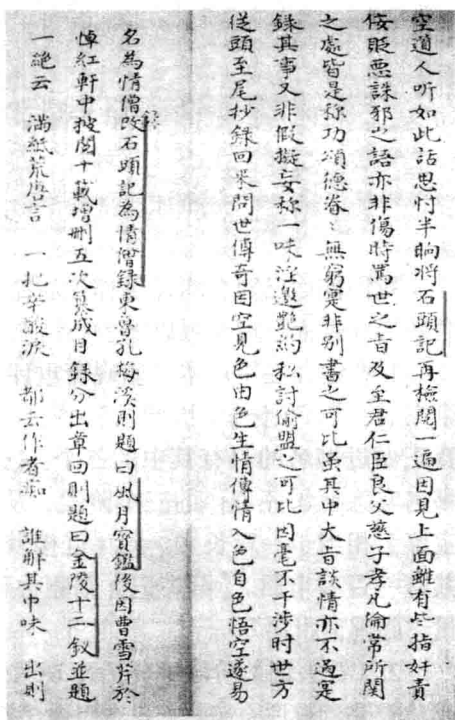 空道人听如此話思忖半晌將石頭記再檢閱一遍因見上面雖有些指奸責
佞貶惡誅邪之語亦非傷時罵世之旨及至君仁臣良父慈子孝凡倫常所関
之處皆是称功頌德眷〻無窮寔非別書之可比虽其中大旨談情亦不過寔
錄其事又非假擬妄称一味淫邀艷約私討偷盟之可比因毫不干涉时世方
從頭至尾抄錄回来問世傳奇因空見色由色生情傳情入色自色悟空遂易
名為情僧改石頭記為情僧錄東魯孔梅溪則題曰風月寶鑑後因曹雪芹於
悼紅軒中披閱十載增刪五次纂成目錄分出章回則題曰金陵十二釵並題
一絕云 滿紙荒唐言 一把辛酸淚 都云作者痴 誰解其中味 出則